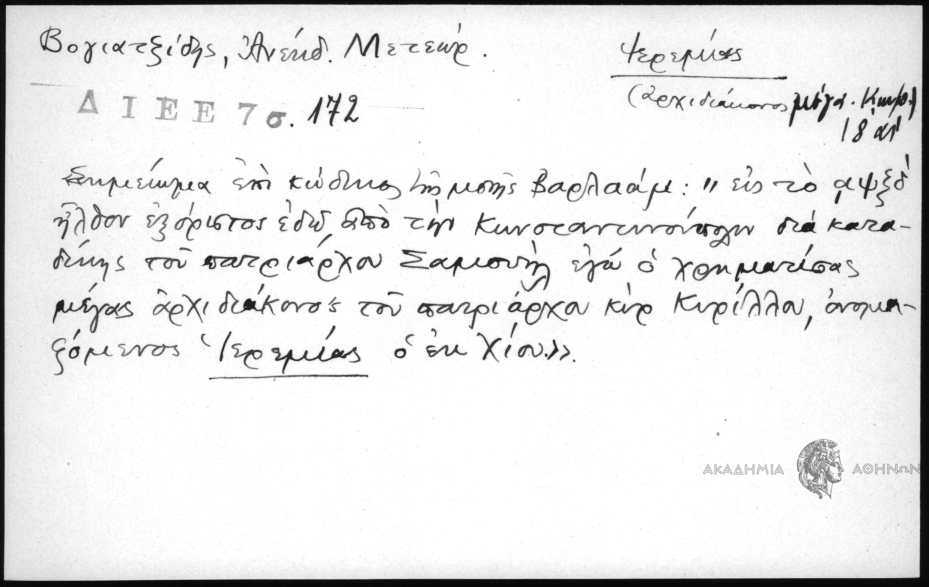 Βογιατζίδης, Ἀνέκδ. Μετεώρ.
Ἰερεμίας
(ἀρχιδιάκονος μέγα. Κων/π)
18 αἰ
Δ Ι Ε Ε 7 σ. 172
Σημείωμα ἐπὶ κώδικος τῆς μονῆς Βαρλαάμ: "εἰς τὸ αψξδ
ἦλθον ἐξόριστος ἐδῶ ἀπὸ τὴν Κωνσταντινούπολιν διὰ κατα-
δίκης τοῦ πατριάρχου Σαμουὴλ ἐγὼ ὁ χρηματίσας
μέγας ἀρχιδιάκονος τοῦ πατριάρχου κὺρ Κυρίλλου, ὀνομα-
ζόμενος Ἱερεμίας ὁ ἐκ Χίου».
ΑΚΑΔΗΜΙΑ ΑΘΗΝΩΝ